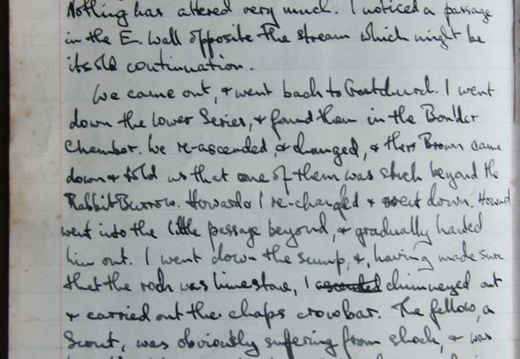 Nothing has altered very much. I noticed a passage
in the E. wall opposite the stream which might be
its old continuation.
We came out, & went back to Greatchurch. I went
down the Lower Series, & found them in the Boulder
Chamber. We re-ascended, & changed, & then Brown came
down & told us that one of them was stuck beyond the
Rabbit Burrow. Howard & I re-changed & went down. Howard
went into the little passage beyond, & gradually hauled
him out. I went down the sump, &, having made sure
that the rock was limestone, I ascended chimneyed out
& carried out the chaps crowbar. The fellow, a
Scout, was obviously suffering from shock, & was